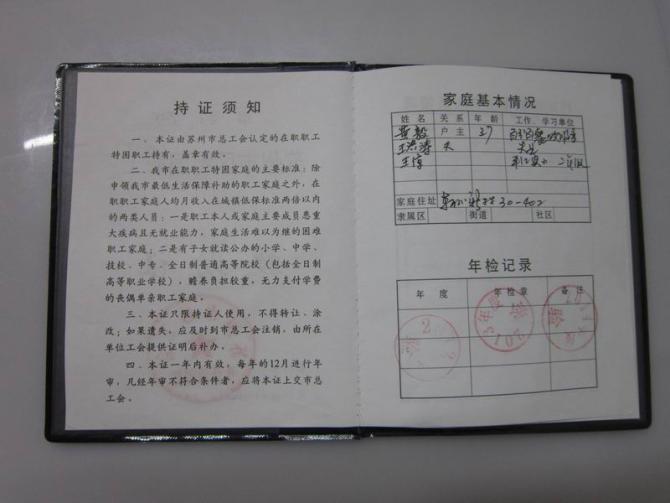 持证须知
一、本证由苏州市总工会认定的在职职工
特困职工持有，盖章有效。
二、我市在职职工特困家庭的主要标准：除
申领我市最低生活保障补助的职工家庭之外，在
职职工家庭人均月收入在城镇低保标准两倍以内
的两类人员：一是职工本人或家庭主要成员患重
大疾病且无就业能力，家庭生活难以为继的困难
职工家庭；二是有子女就读公办的小学、中学、
技校、中专、全日制普通高等院校（包括全日制
高等职业学校），赡养负担较重，无力支付学费
的丧偶单亲职工家庭。
三、本证只限持证人使用，不得转让、涂
改；如果遗失，应及时到市总工会注销，由所在
单位工会提供证明后补办。
四、本证一年内有效，每年的12月进行年
审，凡经年审不符合条件者，应将本证上交市总
工会。
家庭基本情况
姓名 关系 年龄 工作、学习单位
户主 37
夫
家庭住址 30-402
隶属区 街道 社区
年检记录
年度 年检章 备注
2013年度